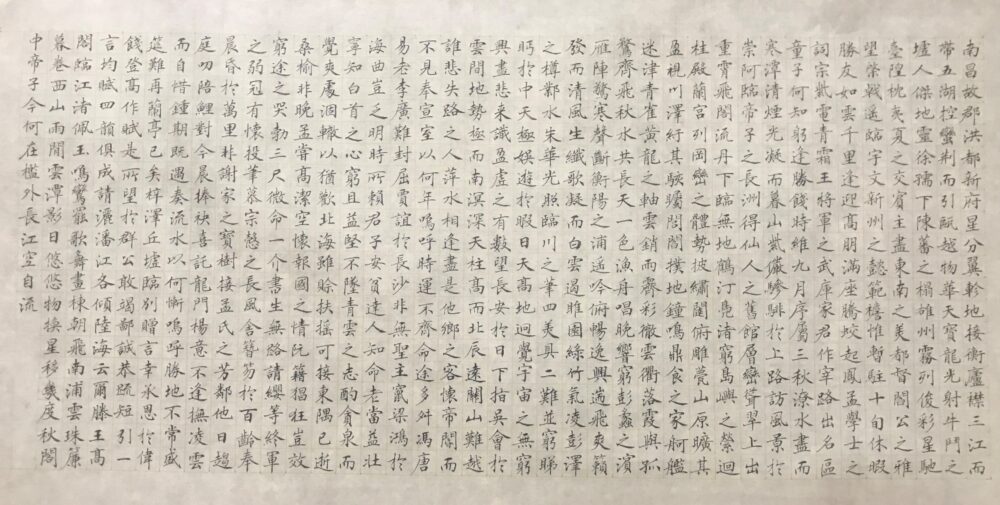 南昌故郡洪都新府星分翼軫地接衡廬襟三江而
帶五湖控蠻荊而引甌越物華天寶龍光射牛鬥之
墟人傑地靈徐孺下陳蕃之榻雄州霧列俊彩星馳
臺隍枕夷夏之交賓主盡東南之美都督閻公之雅
望棨戟遙臨宇文新州之懿範襜帷暫駐十旬休暇
勝友如雲千里逢迎高朋滿座騰蛟起鳳孟學士之
詞宗紫電青霜王將軍之武庫家君作宰路出名區
童子何知躬逢勝餞時維九月序屬三秋潦水盡而
寒潭清煙光凝而暮山紫儼驂騑於上路訪風景於
崇阿臨帝子之長洲得仙人之舊館層巒聳翠上出
重霄飛閣流丹下臨無地鶴汀鳧渚窮島嶼之縈迴
桂殿蘭宮列岡巒之體勢披繡闥俯雕甍山原曠其
盈視川澤紆其駭矚閭閻撲地鐘鳴鼎食之家舸艦
迷津青雀黃龍之軸雲銷雨霽彩徹雲衢落霞與孤
鶩齊飛秋水共長天一色漁舟唱晚響窮彭蠡之濱
雁陣驚寒聲斷衡陽之浦遙吟俯暢逸興遄飛爽籟
發而清風生纖歌凝而白雲遏睢園綠竹氣凌彭澤
之樽鄴水朱華光照臨川之筆四美具二難並窮睇
眄於中天極娛遊於暇日天高地迥覺宇宙之無窮
興盡悲來識盈虛之有數望長安於日下指吳會於
雲間地勢極而南溟深天柱高而北辰遠關山難越
誰悲失路之人萍水相逢盡是他鄉之客懷帝閽而
不見奉宣室以何年嗚呼時運不齊命途多舛馮唐
易老李廣難封屈賈誼於長沙非無聖主竄梁鴻於
海曲豈乏明時所賴君子安貧達人知命老當益壯
寧知白首之心窮且益堅不墜青雲之志酌貪泉而
覺爽處涸轍以猶歡北海雖賒扶搖可接東隅已逝
桑榆非晚孟嘗高潔空懷報國之情阮籍猖狂豈效
窮途之哭勃三尺微命一介書生無路請纓等終軍
之弱冠有懷投筆慕宗愨之長風舍簪笏於百齡奉
晨昏於萬里非謝家之寶樹接孟氏之芳鄰他日趨
庭叨陪鯉對今晨捧袂喜託龍門楊意不逢撫凌雲
而自惜鍾期既遇奏流水以何慚嗚呼勝地不常盛
筵難再蘭亭已矣梓澤丘墟臨別贈言幸承恩於偉
餞登高作賦是所望於群公敢竭鄙誠恭疏短引一
言均賦四韻俱成請灑潘江各傾陸海云爾滕王高
閣臨江渚佩玉鳴鸞罷歌舞畫棟朝飛南浦雲珠簾
暮卷西山雨閒雲潭影日悠悠物換星移幾度秋閣
中帝子今何在檻外長江空自流